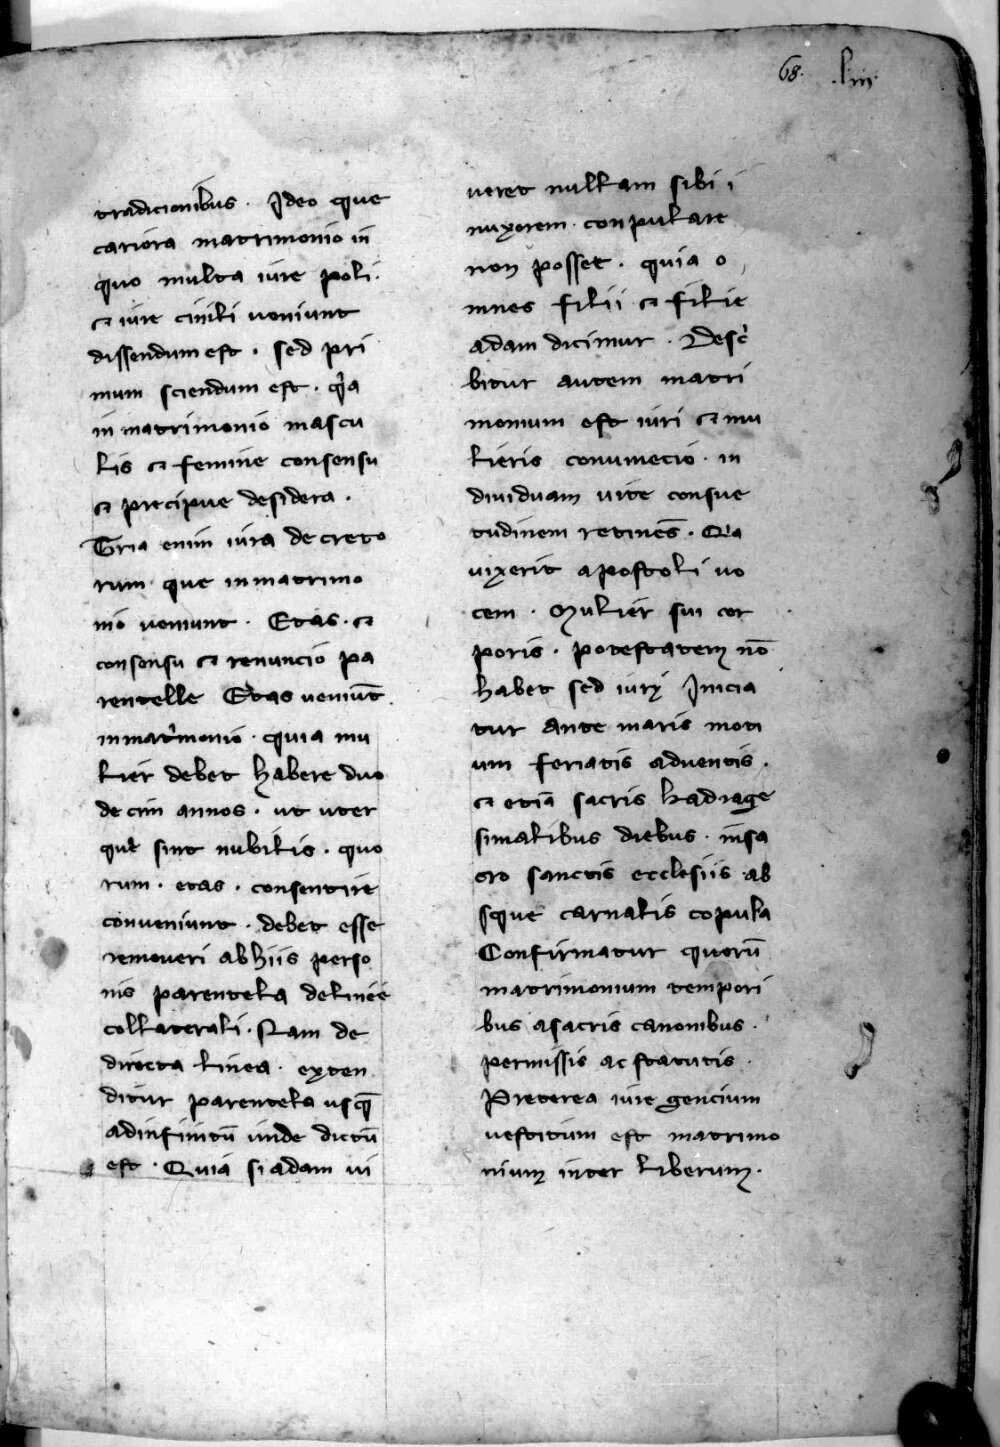 68. .liiii.
tradicionibus. Ideo que
cariora matrimonio in
quo multa iure poli.
et iure ciuili ueniunt
dissendum est. sed pri
mum sciendum est. qia
in matrimonio mascu
lis et femine consensu
et precipue desidera.
Tria enim iura decreto
rum que inmatrimo
nio ueniunt. Etas. et
consensu et renuncio pa
rentelle Etas ueniūt.
inmatrimonio. quia mu
lier debet habere duo
decim annos. ut uter
que sint nubilis. quo
rum. etas. consentire
conueniunt. debet esse
remoueri abhiis perso
nis parentela delinee
collaterali. Nam de
directa linea. exten
ditur parentela usq̄
adinfinitū unde dictū
est. Quia si adam ui
ueret nullam sibi i
nuxorem. conpulare
non posset. quia o
mnes filii et filie
adam dicimur. Desc̉
bitur autem matri
monium est iuri et mu
lieris conuinecio. in
diuiduam uite consue
tudinem retinēs. Qa
uixerit apostoli uo
cem. Mulier sui cor
poris. potestatem nō
habet sed iurj Inicia
tur ante maris moti
um feriatis aduentis.
et etiā sacris kadrage
simalibus diebus. insa
cro sanctis ecclesiis ab
sque carnalis copula
Confirmatur quorū
matrimonium tempori
bus asacris canonibus.
permissis ac statutis.
Preterea iure gencium
uestitum est matrimo
nium inter liberum.